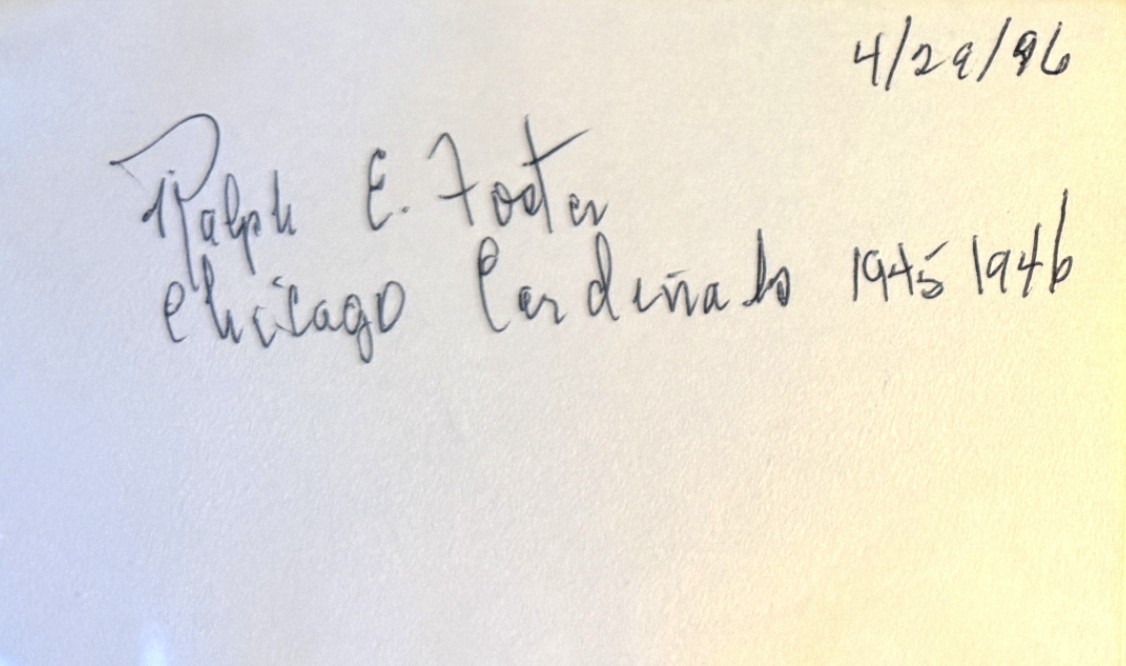 4/29/96
Ralph E. Foster
Chicago Cardinals 1945 1946